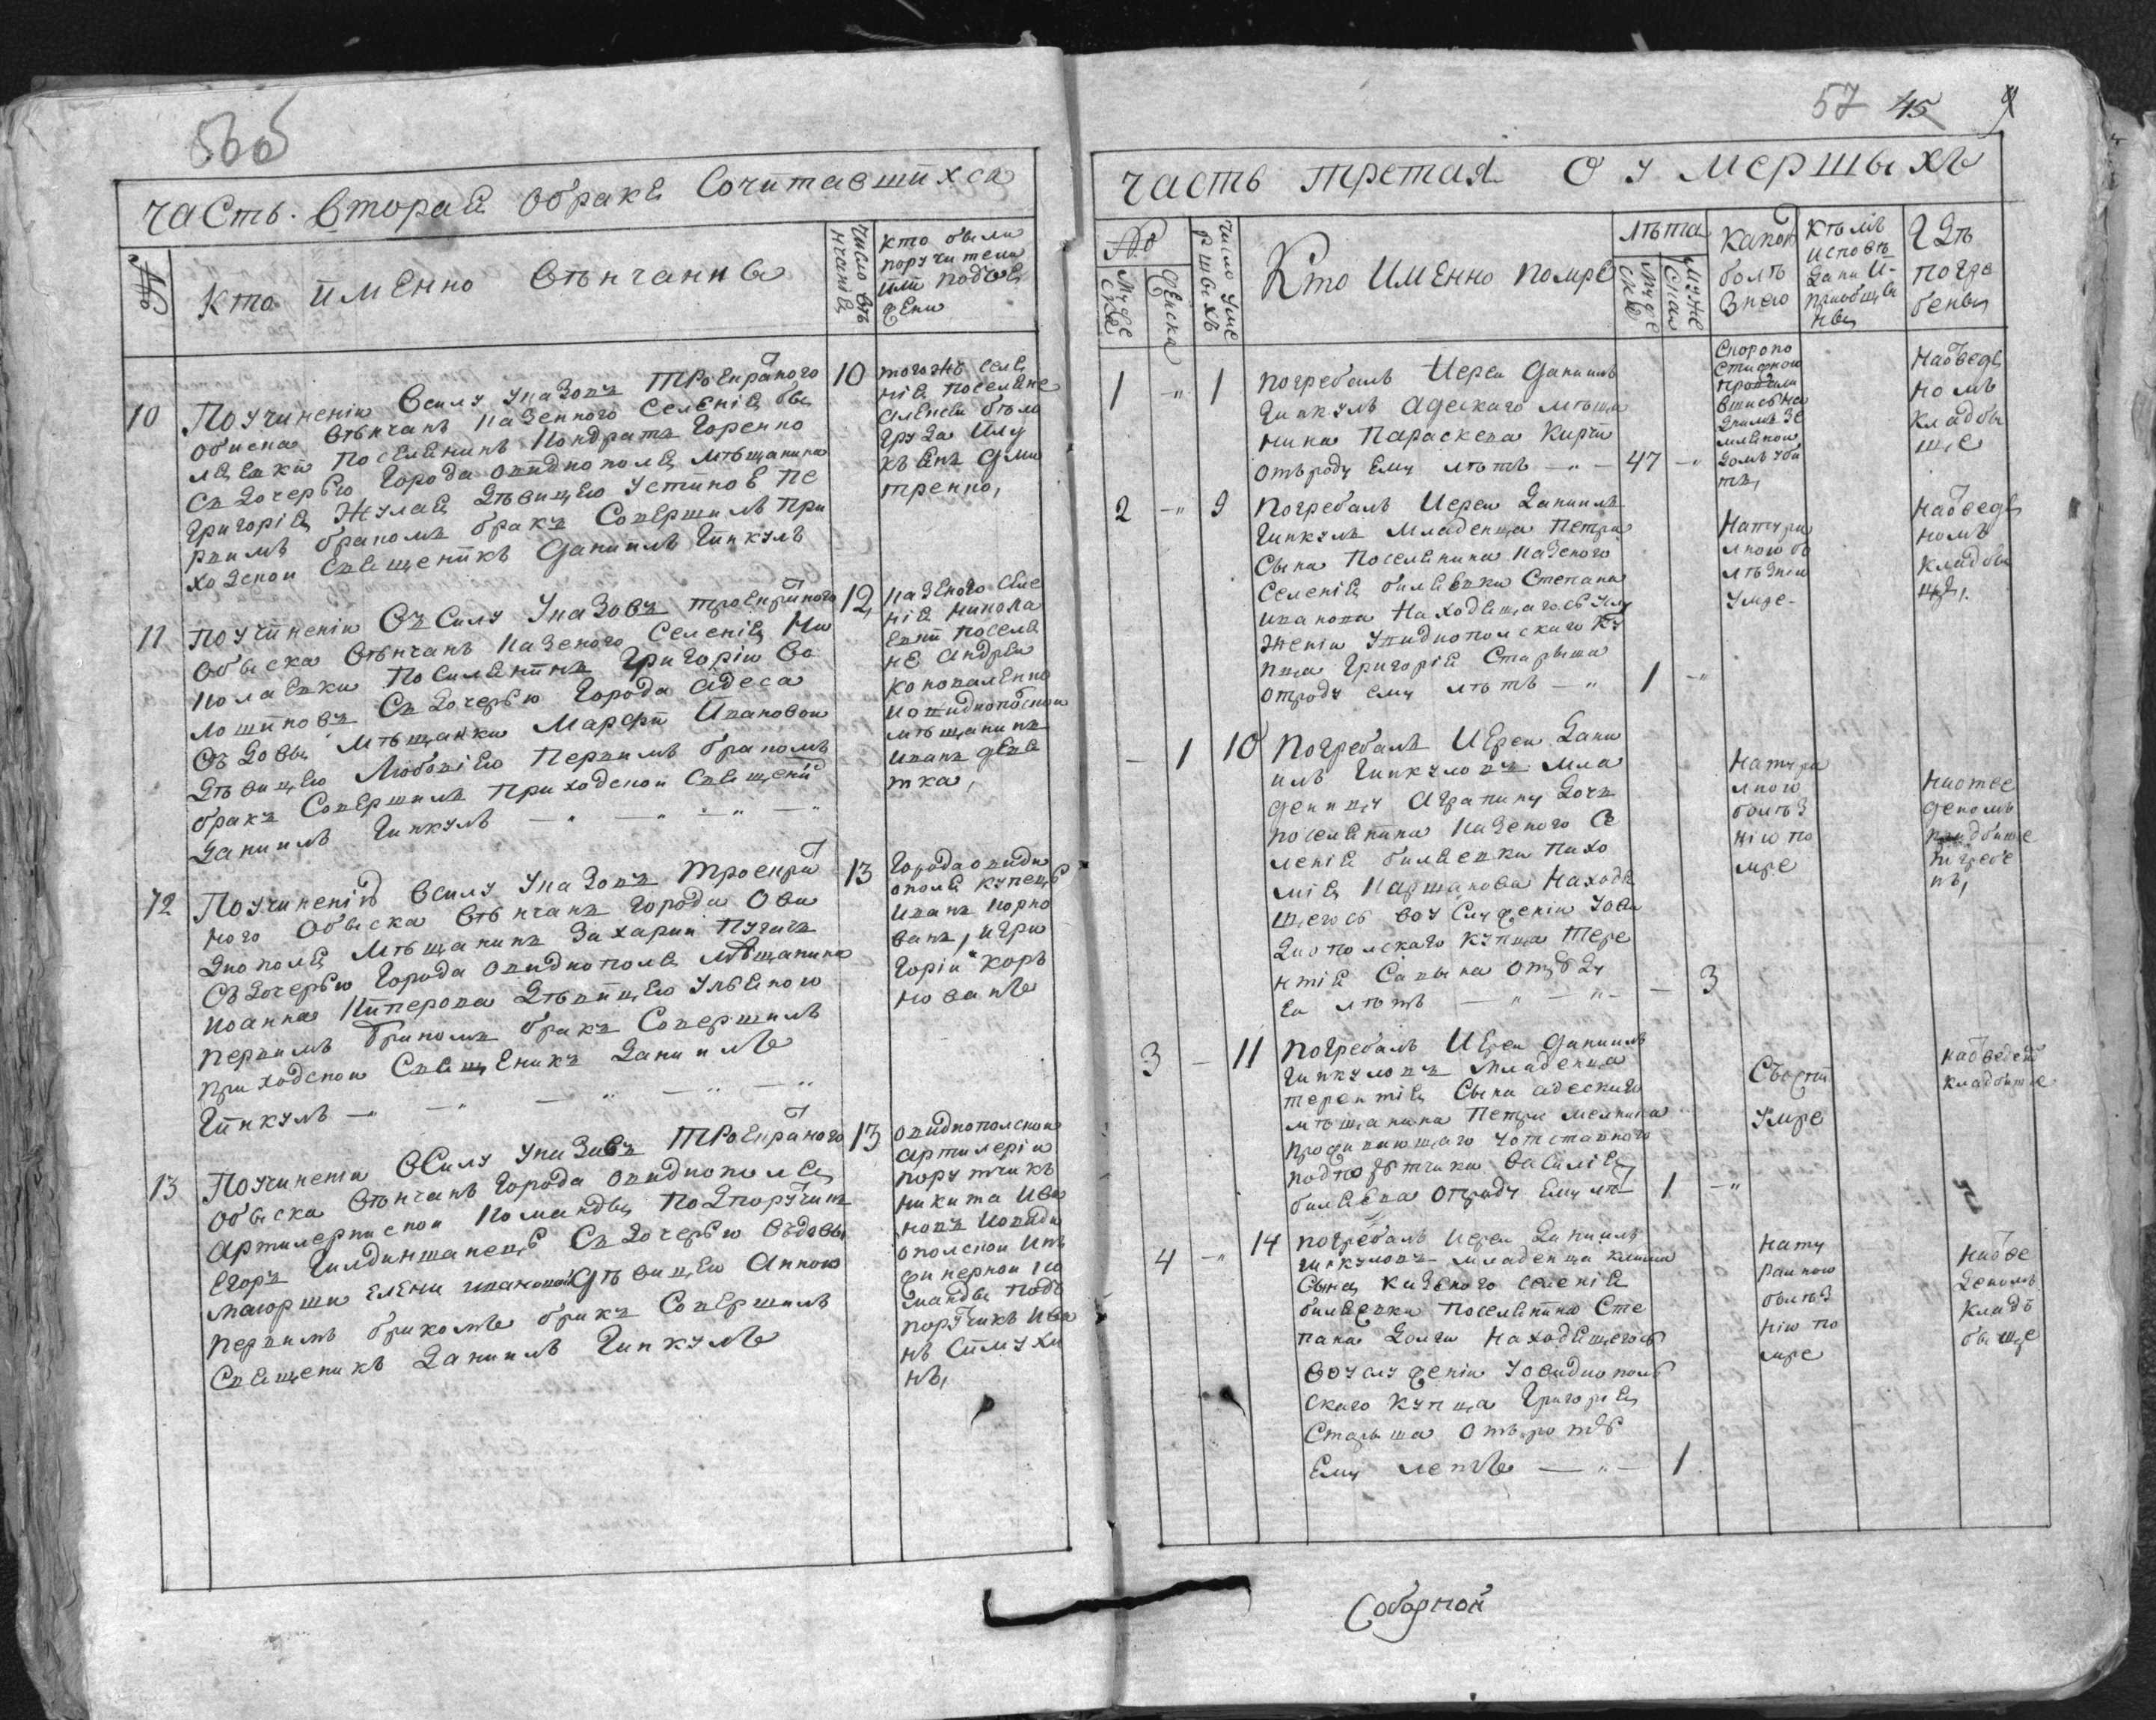 56об
часть вторая о браке Сочитавшихся
№
кто именно венчанъ
число вѣнчанія
кто были
поручители
или подъез
жени
10
Поучиненіи всилу указовъ троекратного
обиска вѣнчанъ казенного селенія бѣ
ляевки поселянинъ Кондратъ Горенко
съ дочерью города овидиополя мѣщанина
Григорія Жулая дѣвицею Устиною пе
рвимъ бракомъ бракъ совершилъ при
ходской священикъ Даниилъ Гинкулъ
10
тогожъ селе
нія поселяне
дми
тренко,
11
Поучиненіи въ силу указовъ троекратного
обыска вѣнчанъ казеного селенія Ни
колаевки поселянинъ Григоріи Во
лошиновъ съ дочерью города Адеса
въдовы мѣщанки Марфи Ивановой
дѣвицею Любовію первимъ бракомъ
бракъ совершилъ приходской священи
Даниилъ Гинкулъ
12
казеного селе
нія никола
евки поселя
не Андреи
коноваленко
иовидиополской
мѣщанинъ
иванъ девя
тка,
12
Поучиненіи всилу указовъ троекра
ного обыска вѣнчанъ города Ови
диополя мѣщанинъ Захарии Пугачъ
съ дочерью города овидиополя мѣщанина
Иоанна Киперова дѣвицею Ульяною
первимъ бракомъ бракъ совершилъ
приходской священикъ Даниилъ
Гинкулъ
13
города овиди
ополя купецъ
Иванъ Корно
ванъ, игри
горіи Коръ
нованъ
13
Поучинени всилу указовъ троекратного
обыска вѣнчанъ города овидиополя
артилериской команды подпоручикъ
Егоръ Гилдиншанецъ съ дочерью въдовы
маиорши елени ивановой дѣвицею Анною
первимъ бракомъ бракъ совершилъ
священикъ Даниилъ Гинкулъ
13
овидиополской
артилеріи
поручикъ
никита Ива
новъ иовиди
ополской инъ
финерной ко
манды подъ
порчикъ Ива
нъ Силуха
нъ,
57 45
часть третая о умершыхъ
№
Муже
ска
Женска
число уме
ршыхъ
Кто именно помре
лѣта
Муже
ска
какою
болѣ
знею
кѣмъ
исповѣ
дани и
приобще
ны
гдѣ
погре
бены
1
1
погребалъ Иереи Даниилъ
Гинкулъ адескаго мѣща
нина Параскева Кирти
отъроду ему лѣтъ
47
Скоропо
стижною
млѣнои
домъ уби
тъ,
Набведе
номъ
кладби
ще
2
9
Погребалъ Иереи Даниилъ
Гинкулъ младенца Петра
сына поселянина казеного
селенія биляевки Степана
иванова находящагосъ услу
женіи увидиополскаго ку
пца Григорія Старыша
отроду ему лѣтъ
1
Натура
лною бо
лѣзнію
умре
Набведе
номъ
кладби
1
10
Погребалъ Иереи Дани
илъ Гинкуловъ мла
деницу Агрипину дочъ
поселянина казеного се
ленія биляевки пахо
мія Каршакова находя
щегосъ воуслуженіи уови
диополскаго купца Тере
нтія Савына отроду
еи лѣтъ
3
Натура
лною
болѣз
нію по
мре
Наотве
деномъ
кладбище
погребе
нъ,
3
11
Погребалъ Иереи Даниилъ
Гинкуловъ младенца
терентія сына адескаго
мѣщанина Петра мелника
проживающаго уотставного
подпорутчика василія
биляева отроду ему лѣ
1
умре
наѿведено
кладбище
4
14
погребалъ Иереи Даниилъ
Гинкуловъ младенца
сына казеного селенія
биляевки поселянина Сте
пана Долги находящегосъ
воуслуженіи уовидиополъ
скаго купца Григорія
Старыша отъроду
ему летъ
1
Нату
ралною
болѣз
нію по
мре
Наѿве
деномъ
кладъ
бище
Соборной